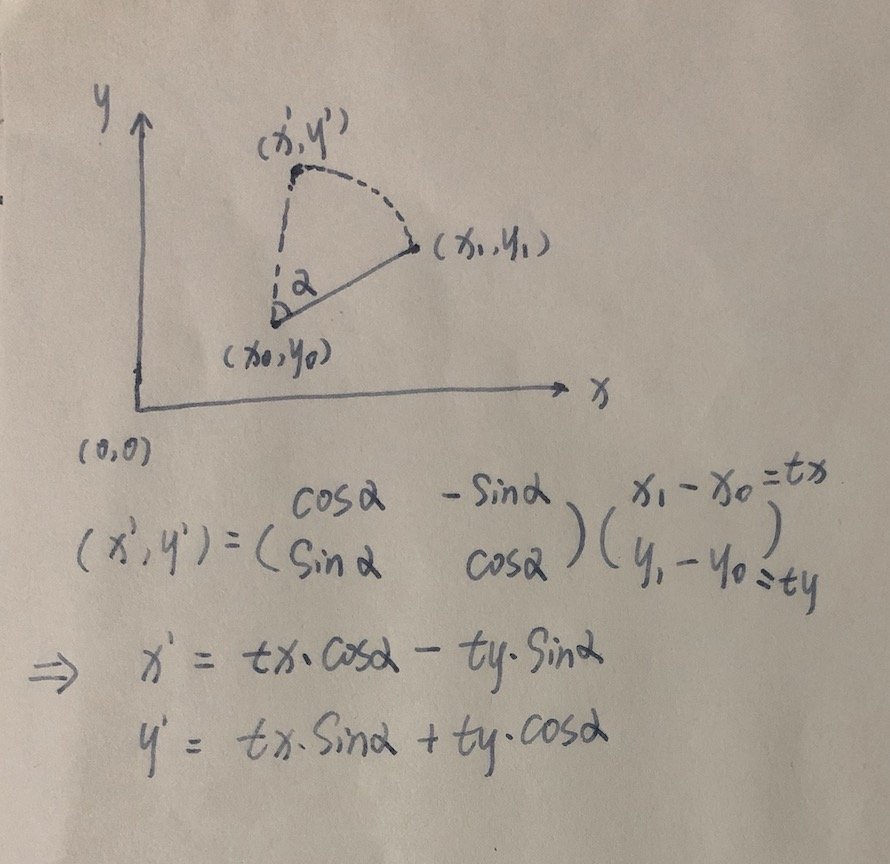 y
(x',y')
(x₁,y₁)
α
(x₀,y₀)
x
(0,0)
(x',y') = (cosα -Sinα Sinα cosα)(x₁-x₀=tx y₁-y₀=ty)
⇒ x' = tx·cosα - ty·Sinα
y' = tx·Sinα + ty·cosα